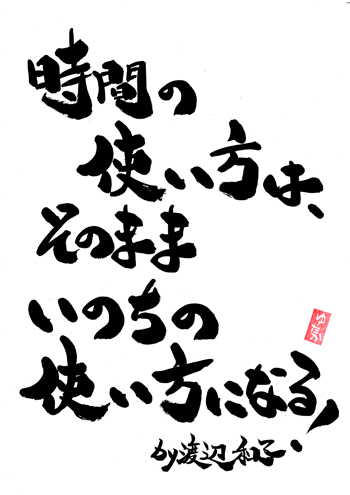 時間の
使い方は、
そのまま
いのちの
使い方になる!
by渡辺和子
ゆたか